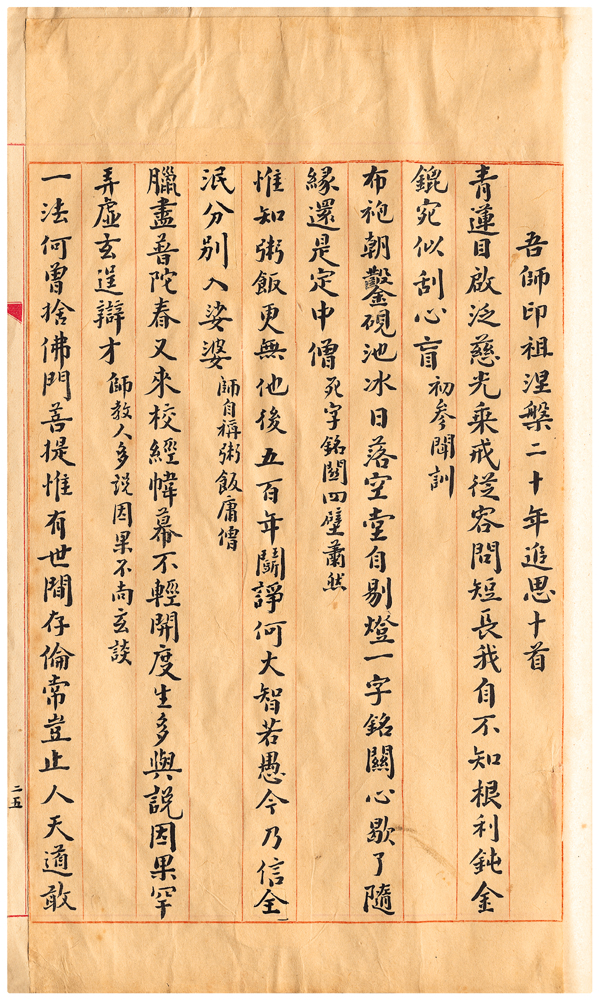 吾師印祖涅槃二十年追思十首
青蓮目啟泛慈光乘戒從容問短長我自不知根利鈍金
鎞宛似刮心盲 初參聞訓
布袍朝鑿硯池冰日落空堂自剔燈一字銘關心歇了隨
緣還是定中僧 死字銘關四壁蕭然
惟知粥飯更無他後五百年鬭諍何大智若愚今乃信全
泯分別入娑婆 師自稱粥飯庸僧
臘盡普陀春又來校經幃幕不輕開度生多與說因果罕
弄虛玄逞辯才 師教人多說因果不尚玄談
一法何曾捨佛門菩提惟有世間存倫常豈止人天道敢
二五